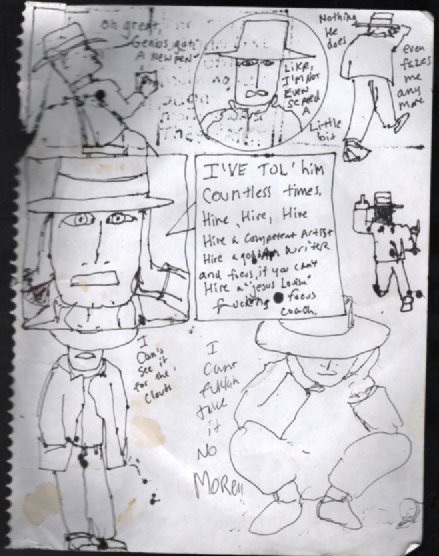 Oh great,
Genius got
A new Pen
Like,
I'M NOT
EVEN
SCARED
A
Little
bit
Nothing
He
does
even
fazes
me
any
more
I'VE TOL' him
Countless times,
Hire, Hire, Hire
Hire a Competent Artist
Hire a writer
and focus, if you can't
Hire a "Jesus
fucking focus
coach.
I
Can't
See it
for the
Clouts
I
Cant
take
it
No
More